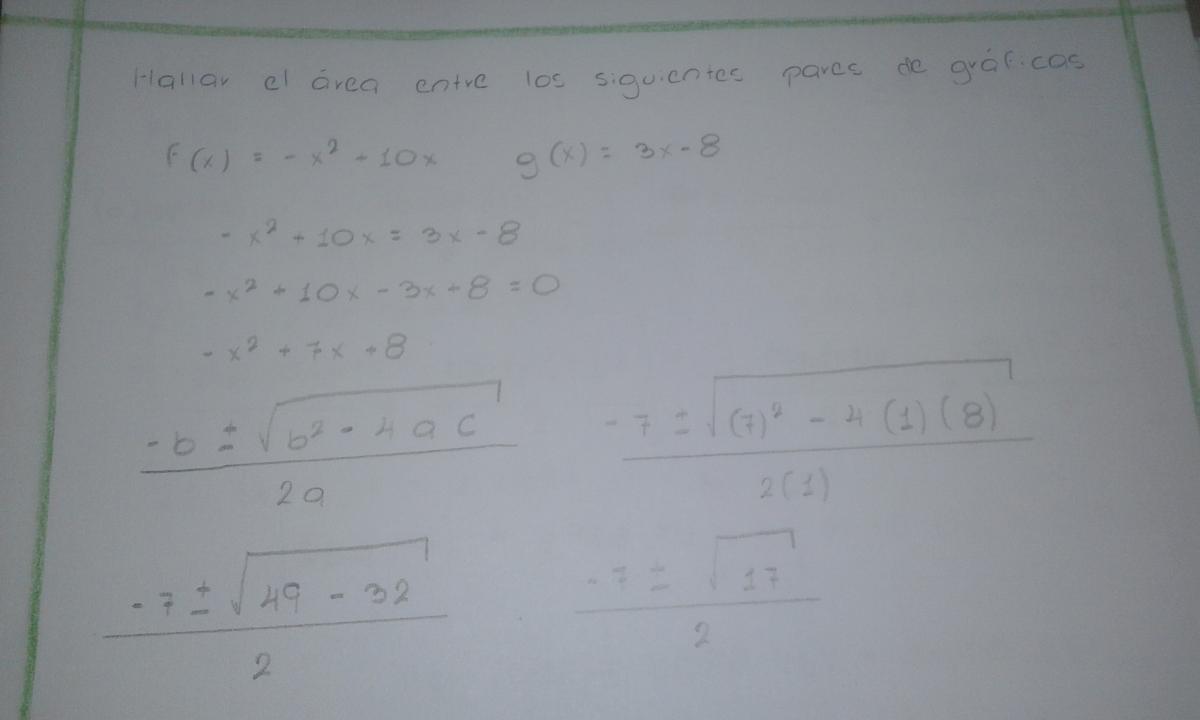 Hallar el área entre los siguientes pares de gráficas
f(x) = - x² + 10x g(x) = 3x - 8
- x² + 10x = 3x - 8
- x² + 10x - 3x + 8 = 0
- x² + 7x + 8
-b ± √(b² - 4ac) / 2a
-7 ± √((7)² - 4(1)(8)) / 2(1)
-7 ± √(49 - 32) / 2
-7 ± √17 / 2